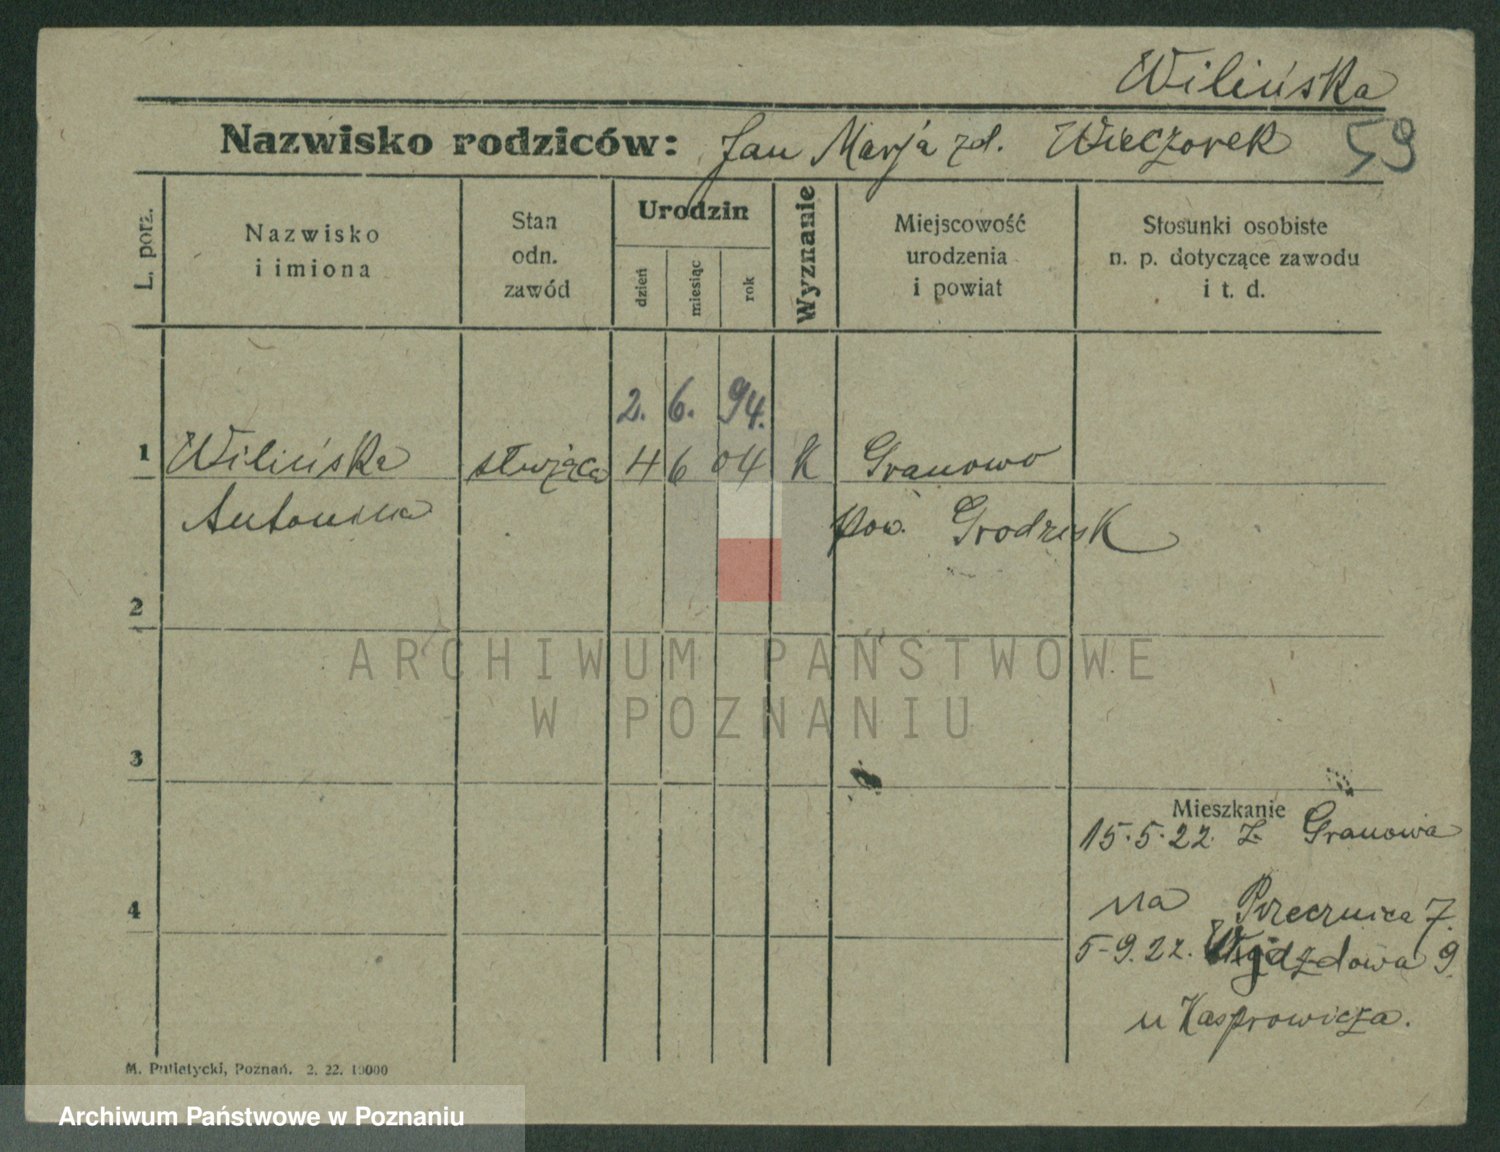 Wilińska
Nazwisko rodziców: Jan Marja zd. Wieczorek 59
L. porz.
Nazwisko
i imiona
Stan
odn.
zawód
Urodzin
dzień
miesiąc
rok
Wyznanie
Miejscowość
urodzenia
i powiat
Stosunki osobiste
n. p. dotyczące zawodu
i t. d.
2. 6. 94.
1 Wilińska służąca 4 6 04 K Granowo
Antonina pow. Grodzisk
2
3
4
ARCHIWUM PAŃSTWOWE
W POZNANIU
Mieszkanie
15.5.22. z Granowa
na Przecznica 7.
5-9.22. Wjazdowa 9
u Kasprowicza.
M. Putiatycki, Poznań. 2. 22. 10000
Archiwum Państwowe w Poznaniu